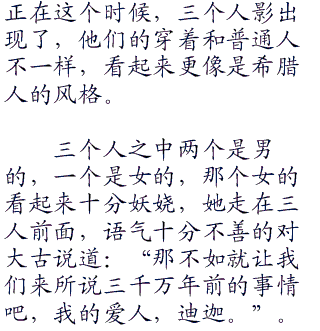 正在这个时候，三个人影出
现了，他们的穿着和普通人
不一样，看起来更像是希腊
人的风格。
三个人之中两个是男
的，一个是女的，那个女的
看起来十分妖娆，她走在三
人前面，语气十分不善的对
大古说道：“那不如就让我
们来所说三千万年前的事情
吧，我的爱人，迪迦。”。